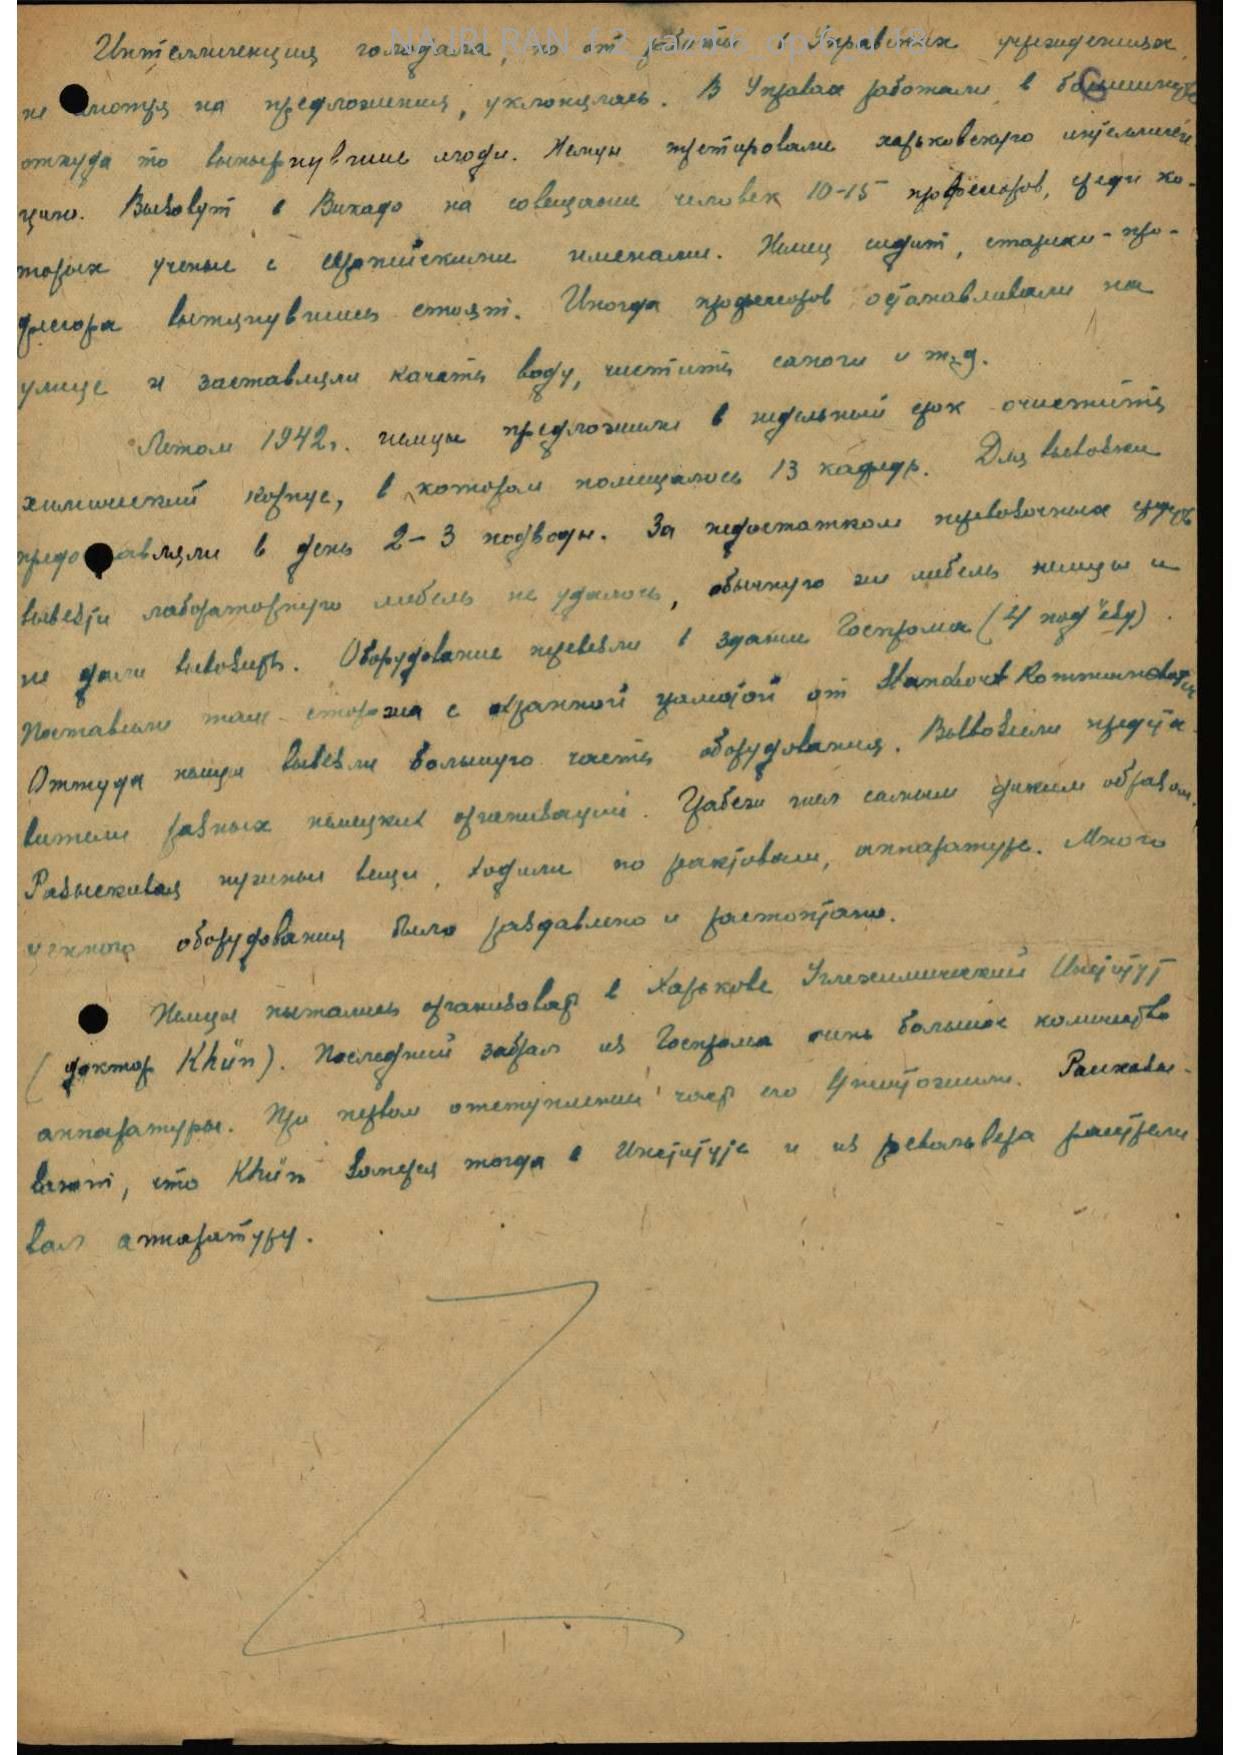 Интеллигенция голодала, но от работы в Управских учреждениях,
не смотря на предложения, уклонялась. В Управах работали в большинстве
откуда то вынырнувшие люди. Немцы третировали харьковскую интеллиген-
цию. Вызовут в Викадо на совещание человек 10-15 профессоров, среди ко-
торых ученые с европейскими именами. Немец сидит, старики-про-
фессора вытянувшись стоят. Иногда профессоров останавливали на
улице и заставляли качать воду, чистить сапоги и т.д.
Летом 1942г. немцы предложили в недельный срок очистить
химический корпус, в котором помещалось 13 кафедр. Для вывозки
предоставляли в день 2-3 подводы. За недостатком перевозочных средств
вывезти лабораторную мебель не удалось, обычную же мебель немцы и
не дали вывозить. Оборудование перевезли в здание Госпрома (4 под"езд).
Поставили там сторожа с охранной грамотой от Standort Kommandatur
Оттуда немцы вывезли большую часть оборудования. Вывозили предста-
вители разных немецких организаций. Грабеж шел самым диким образом.
Разыскивая нужные вещи, ходили по реактивам, аппаратуре. Много
ценного оборудования было раздавлено и растоптано.
Немцы пытались организовать в Харькове Углехимический Институт
(доктор Khün). Последний забрал из Госпрома очень большое количество
аппаратуры. При первом отступлении часть его уничтожили. Рассказы-
вают, что Khün заперся тогда в Институте и из револьвера расстрели-
вал аппаратуру.